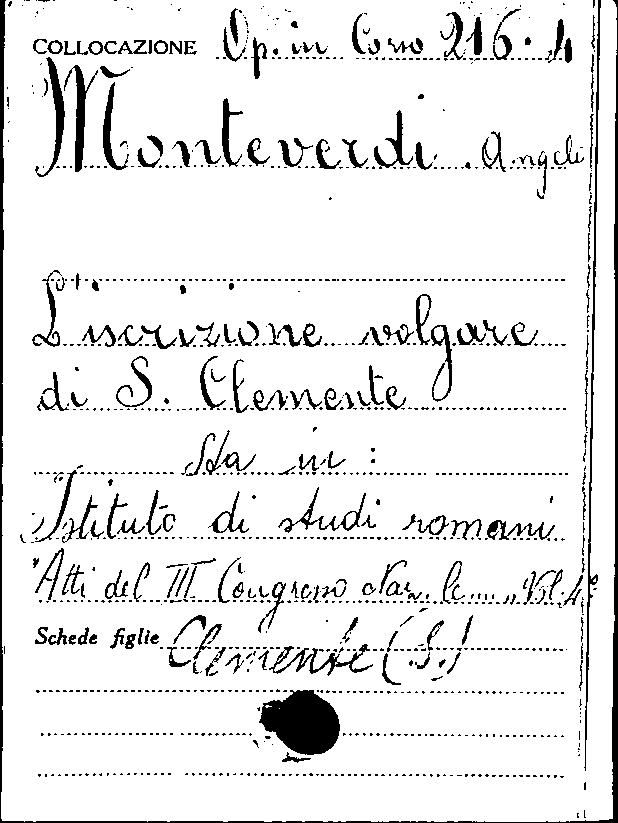 COLLOCAZIONE Op. in Corso 216. 4
Monteverdi. Angelo
L'iscrizione volgare
di S. Clemente
Sta in:
Istituto di studi romani
"Atti del III Congresso Naz.le...." Vol. 4°
Schede figlie Clemente (S.)